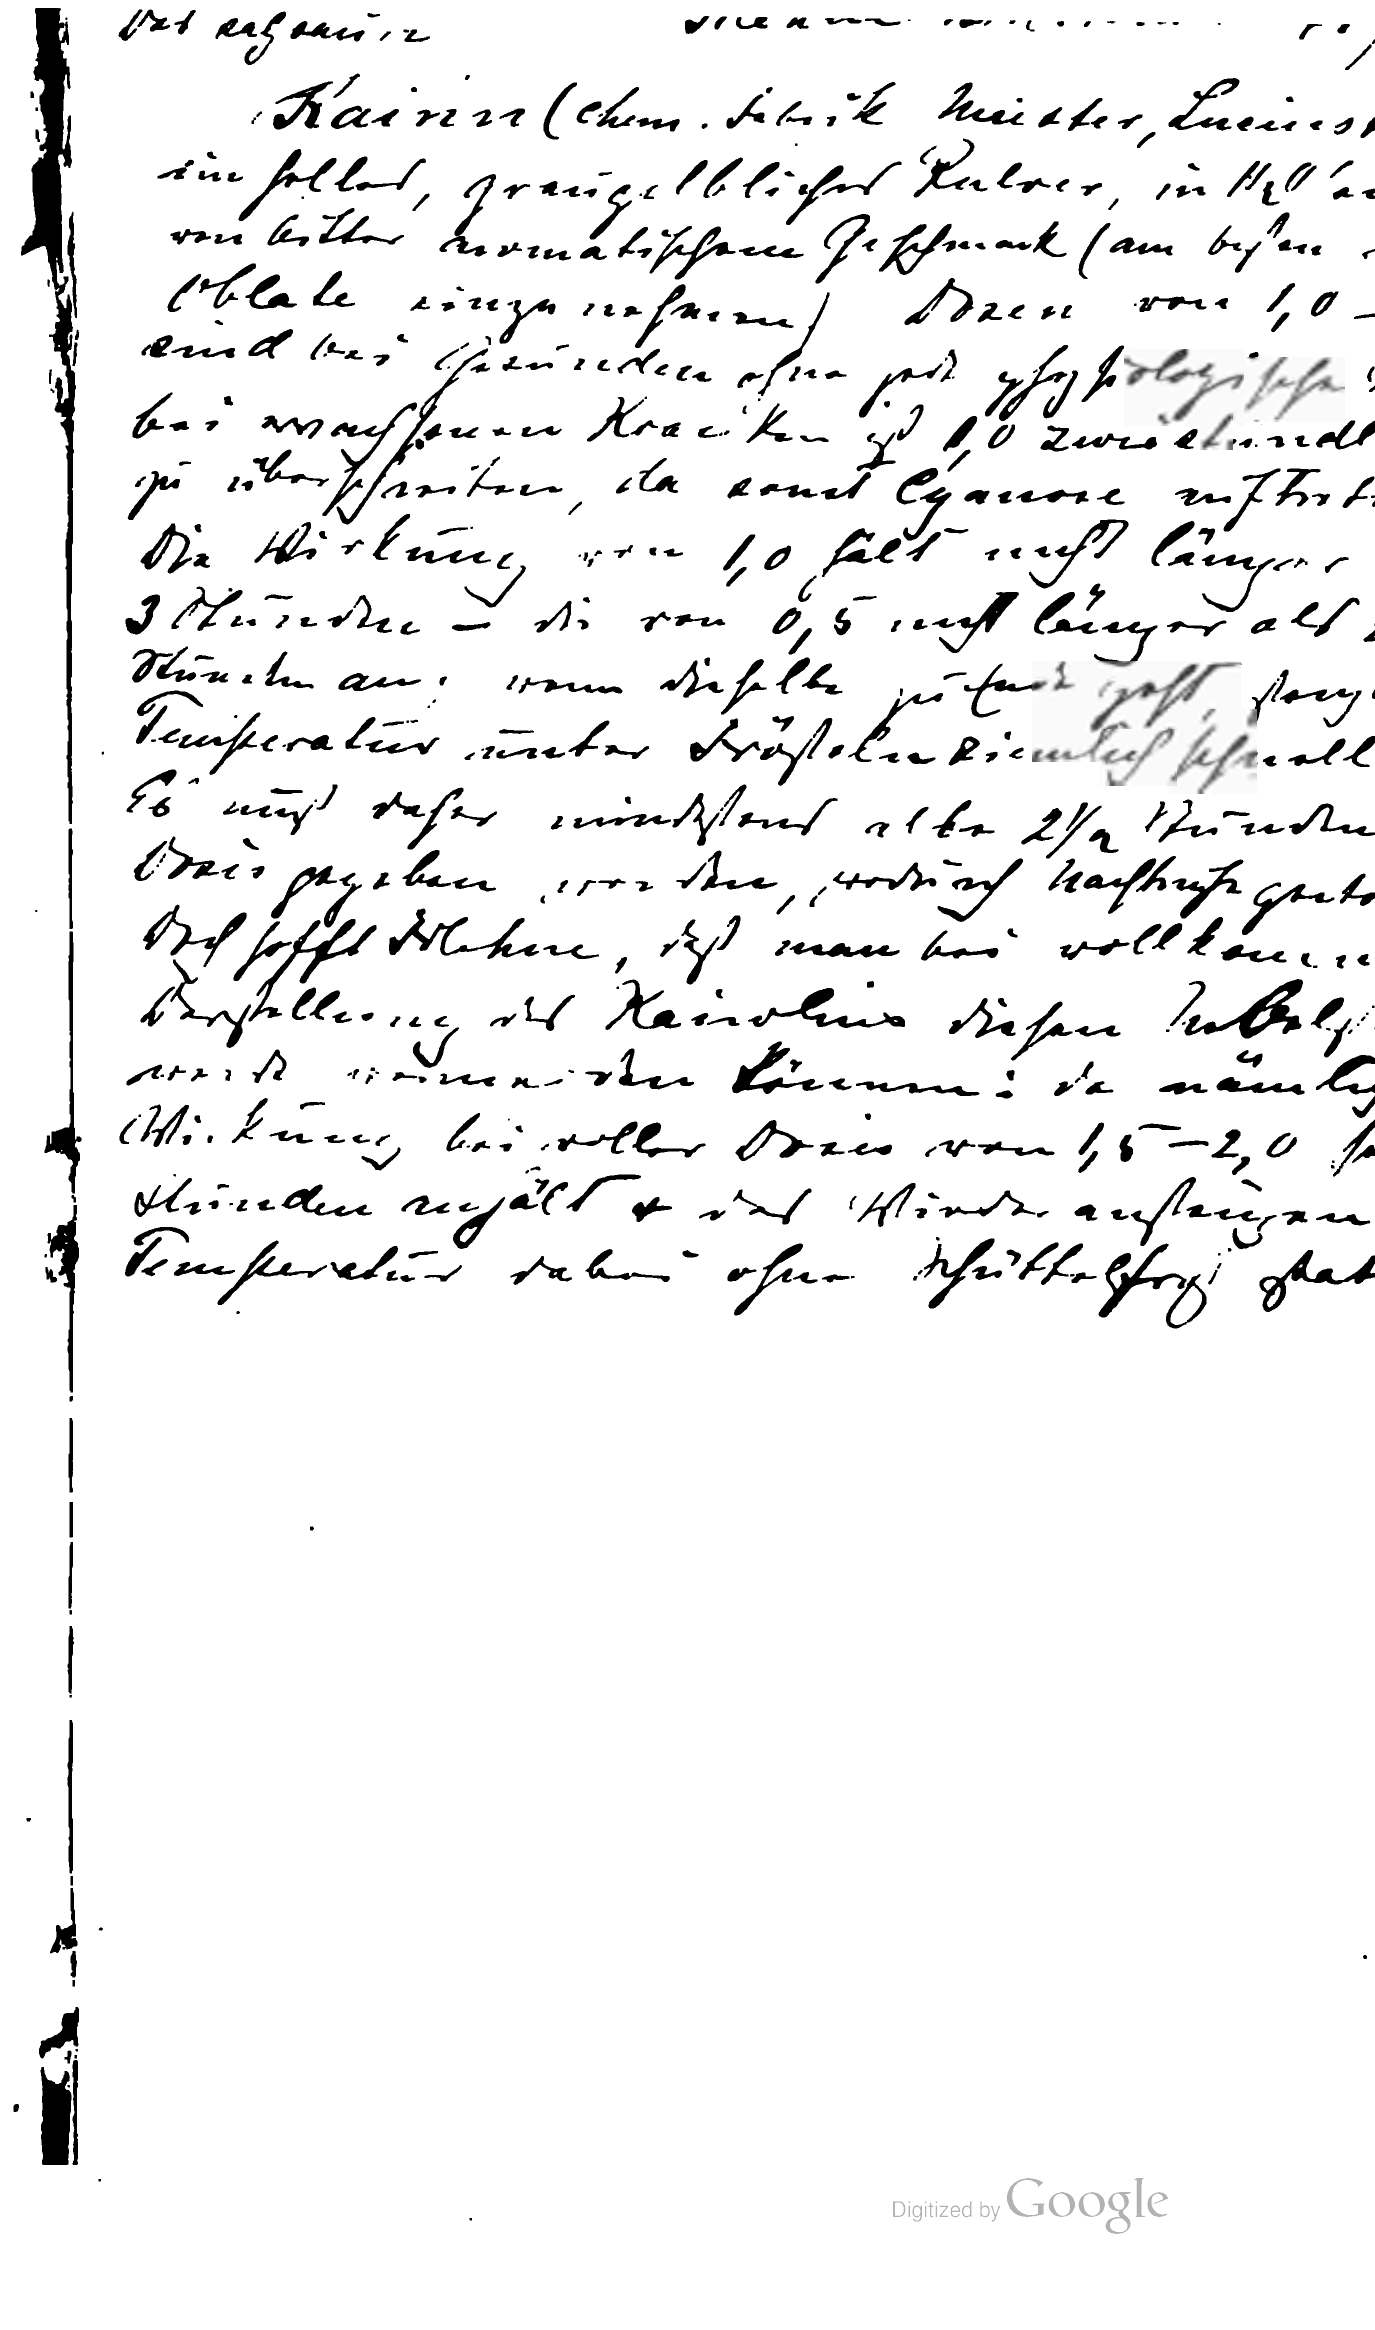 Kairin (chem. Fabrik Meister, Lucius
ein helles, graugelbliches Pulver, in H2O
von bitter aromatischem Geschmack (am besten
Oblate einzunehmen) Dosen von 1,0 –
sind bei Gesunden ohne jede physiologische
bei erwachsenen Kranken ist 1,0 zweistündl
zu überschreiten, da sonst Cyanose auftret
Die Wirkung von 1,0 hält nicht länger
3 Stunden – die von 0,5 nicht länger als
Stunden an; wenn dieselbe zu Ende geht, steigt
Temperatur unter Frösteln ziemlich schnell
Es muß daher mindestens alle 2 1/2 Stunden
Dosis gegeben werden, wodurch Nachtruhe gestö
Doch hofft Filehne, daß man bei vollkomm
Darstellung des Kairolins diesen
werde vermeiden können: da nämlich
Wirkung bei voller Dosis von 1,5–2,0
Stunden anhält & das Wiederansteigen
Temperatur dabei ohne Schüttelfrost stat
Digitized by Google